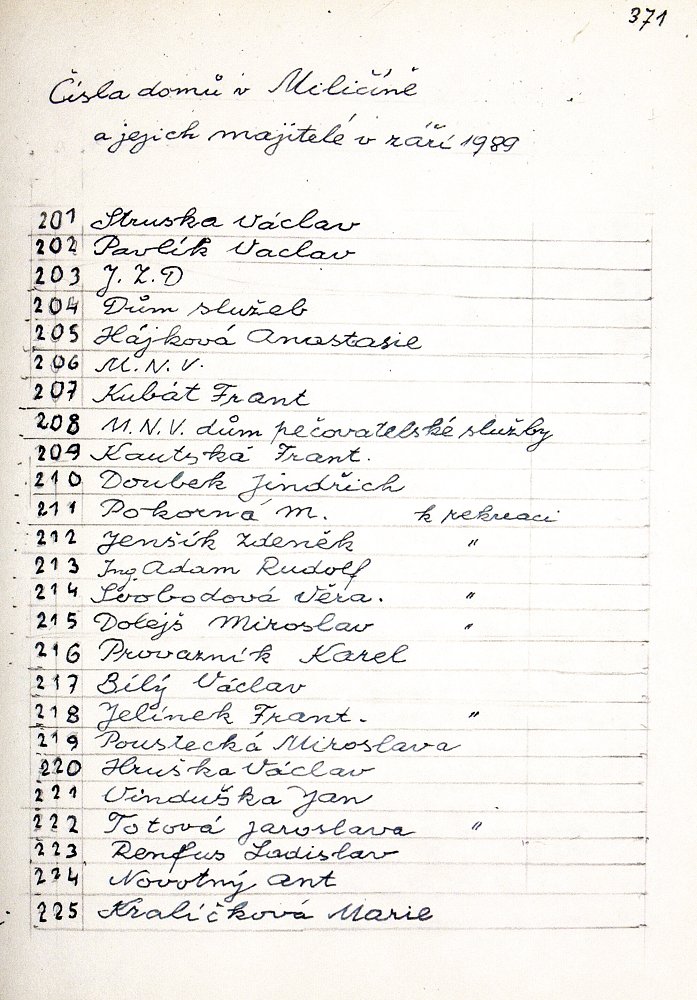 371
Čísla domů v Miličíně
a jejich majitelé v září 1989
201 Struska Václav
202 Pavlík Vaclav
203 J.Z.D
204 Dům služeb
205 Hájková Anastasie
206 M.N.V.
207 Kubát Frant
208 M.N.V. dům pečovatelské služby
209 Kautská Frant.
210 Doubek Jindřich
211 Pokorná M. k rekreaci
212 Jenšík Zdeněk "
213 Ing Adam Rudolf
214 Svobodová Věra. "
215 Dolejš Miroslav "
216 Provazník Karel
217 Bílý Václav
218 Jelínek Frant. "
219 Poustecká Miroslava
220 Hruška Václav
221 Vinduška Jan
222 Totová Jaroslava "
223 Renfus Ladislav
224 Novotný Ant
225 Kralíčková Marie